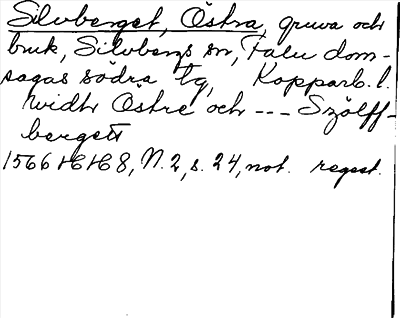 Silvberget, Östra, gruva och
bruk, Silvbergs sn, Falu dom-
sagas södra tg, Kopparb. l.
widh Östre och --- Szölff-
bergett
1566 HH 8, N. 2, s. 24, not. regest.